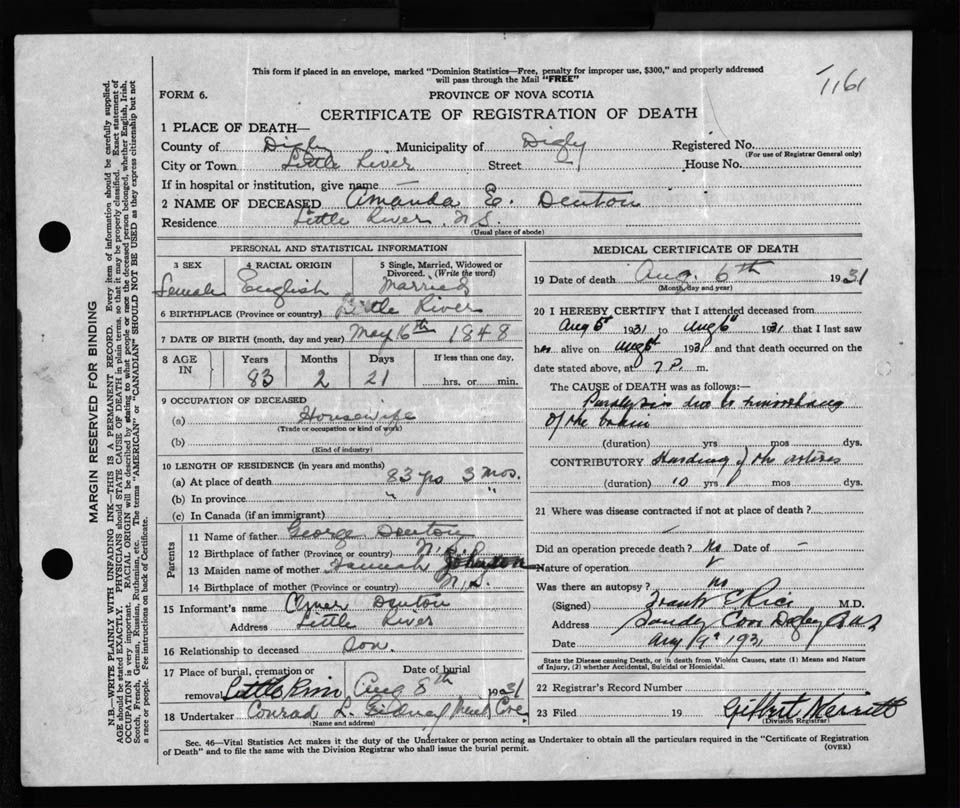 This form if placed in an envelope, marked "Dominion Statistics—Free, penalty for improper use, $300," and properly addressed
will pass through the Mail "FREE"
1161
FORM 6.
PROVINCE OF NOVA SCOTIA
CERTIFICATE OF REGISTRATION OF DEATH
1 PLACE OF DEATH—
County of Digby Municipality of Digby Registered No.
(For use of Registrar General only)
City or Town Little River Street — House No.
If in hospital or institution, give name —
2 NAME OF DECEASED Amanda E. Denton
Residence Little River N.S.
(Usual place of abode)
PERSONAL AND STATISTICAL INFORMATION
3 SEX 4 RACIAL ORIGIN 5 Single, Married, Widowed or
Divorced. (Write the word)
Female English Married
6 BIRTHPLACE (Province or country) Little River
7 DATE OF BIRTH (month, day and year) May 16th 1848
8 AGE IN Years Months Days If less than one day,
83 2 21 hrs. or min.
9 OCCUPATION OF DECEASED
(a) Housewife
(Trade or occupation or kind of work)
(b)
(Kind of industry)
10 LENGTH OF RESIDENCE (in years and months)
(a) At place of death 83 yrs 3 mos.
(b) In province " "
(c) In Canada (if an immigrant)
Parents
11 Name of father George Denton
12 Birthplace of father (Province or country) N.S.
13 Maiden name of mother Hannah Johnson
14 Birthplace of mother (Province or country) N.S.
15 Informant's name Denton
Address Little River
16 Relationship to deceased Son.
17 Place of burial, cremation or removal Date of burial
Little River Aug 8th 1931
18 Undertaker Conrad L. Gidney Cove
(Name and address)
MEDICAL CERTIFICATE OF DEATH
19 Date of death Aug. 6th 1931
(Month, day and year)
20 I HEREBY CERTIFY that I attended deceased from
Aug 5th 1931 to Aug 6th 1931 that I last saw
her alive on Aug 6th 1931 and that death occurred on the
date stated above, at 7 P. m.
The CAUSE OF DEATH was as follows:—
Paralysis due to hemorrhage
of the brain
(duration) yrs mos dys.
CONTRIBUTORY Harding of the arteries
(duration) 10 yrs mos dys.
21 Where was disease contracted if not at place of death?
Did an operation precede death? No Date of —
Nature of operation
Was there an autopsy? No
(Signed) Frank E Rice M.D.
Address Sandy Cove Digby Co N.S.
Date Aug 9th 1931
State the Disease causing Death, or in death from Violent Causes, state (1) Means and Nature of Injury, (2) whether Accidental, Suicidal or Homicidal.
22 Registrar's Record Number
23 Filed 19 Gilbert Merritt
(Division Registrar)
Sec. 46—Vital Statistics Act makes it the duty of the Undertaker or person acting as Undertaker to obtain all the particulars required in the "Certificate of Registration
of Death" and to file the same with the Division Registrar who shall issue the burial permit.
(OVER)
MARGIN RESERVED FOR BINDING
N.B.—WRITE PLAINLY WITH UNFADING INK—THIS IS A PERMANENT RECORD. Every item of information should be carefully supplied.
AGE should be stated EXACTLY. PHYSICIANS should STATE CAUSE OF DEATH in plain terms, so that it may be properly classified. Exact statement of
OCCUPATION is very important. RACIAL ORIGIN will be described by stating to what people or race the deceased person belonged, whether English, Irish,
Scotch, French, German, Russian, Ruthenian, etc. The terms "AMERICAN" or "CANADIAN" SHOULD NOT BE USED as they express citizenship but not
a race or people. Fee instructions on back of Certificate.